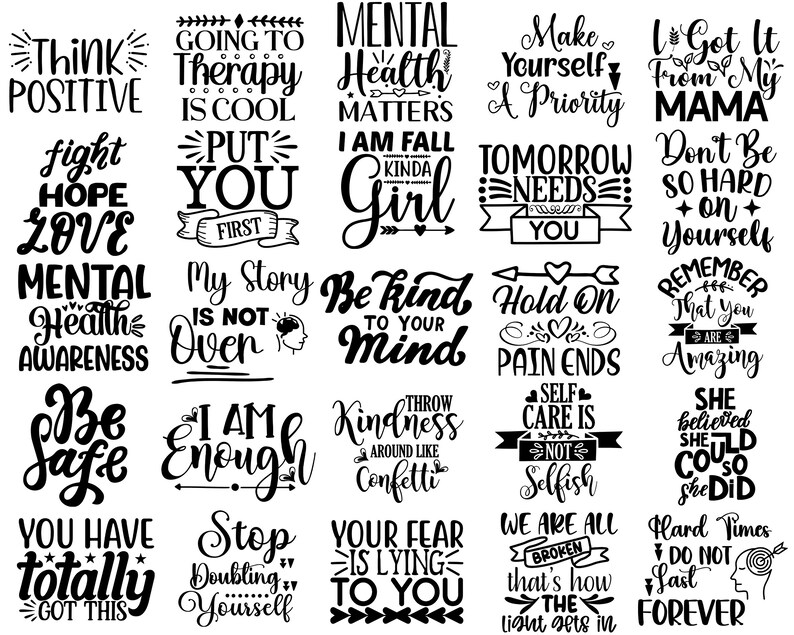 Think
POSITIVE
GOING TO
Therapy
IS COOL
MENTAL
Health
MATTERS
Make
Yourself
A Priority
I Got It
From My
MAMA
fight
HOPE
LOVE
PUT
YOU
FIRST
I AM FALL
KINDA
Girl
TOMORROW
NEEDS
YOU
Don't Be
SO HARD
on
Yourself
MENTAL
Health
AWARENESS
My Story
IS NOT
Over
Be kind
TO YOUR
Mind
Hold On
PAIN ENDS
REMEMBER
That You
ARE
Amazing
Be
Safe
I AM
Enough
THROW
Kindness
AROUND LIKE
Confetti
SELF
CARE IS
NOT
Selfish
SHE
believed
SHE
COULD
SO
she DID
YOU HAVE
totally
GOT THIS
Stop
Doubling
Yourself
YOUR FEAR
IS LYING
TO YOU
WE ARE ALL
BROKEN
that's how
THE
light gets in
Hard Times
DO NOT
Last
FOREVER